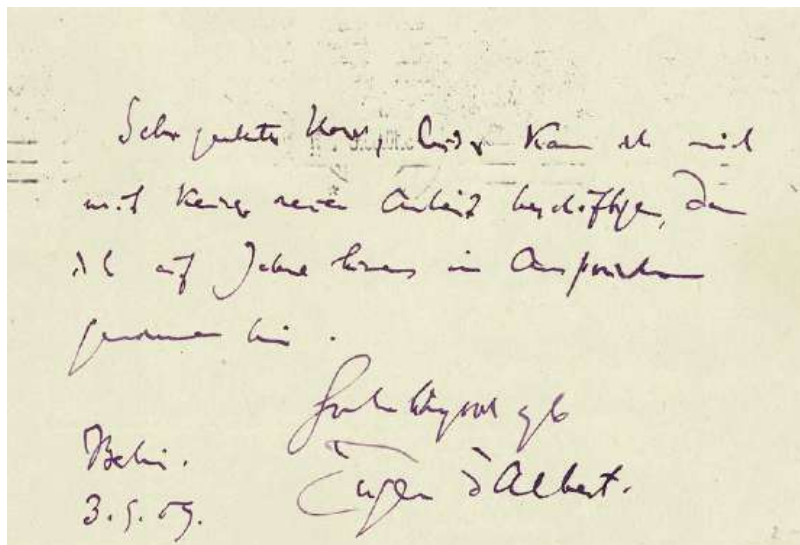 Sehr geehrter Herr, leider kann ich mich
mit keiner neuen Arbeit beschäftigen, denn
ich auf Jahre hinaus in Anspruch
genommen bin.
Hochachtungsvoll
Berlin.
Eugen d'Albert.
3.5.09.